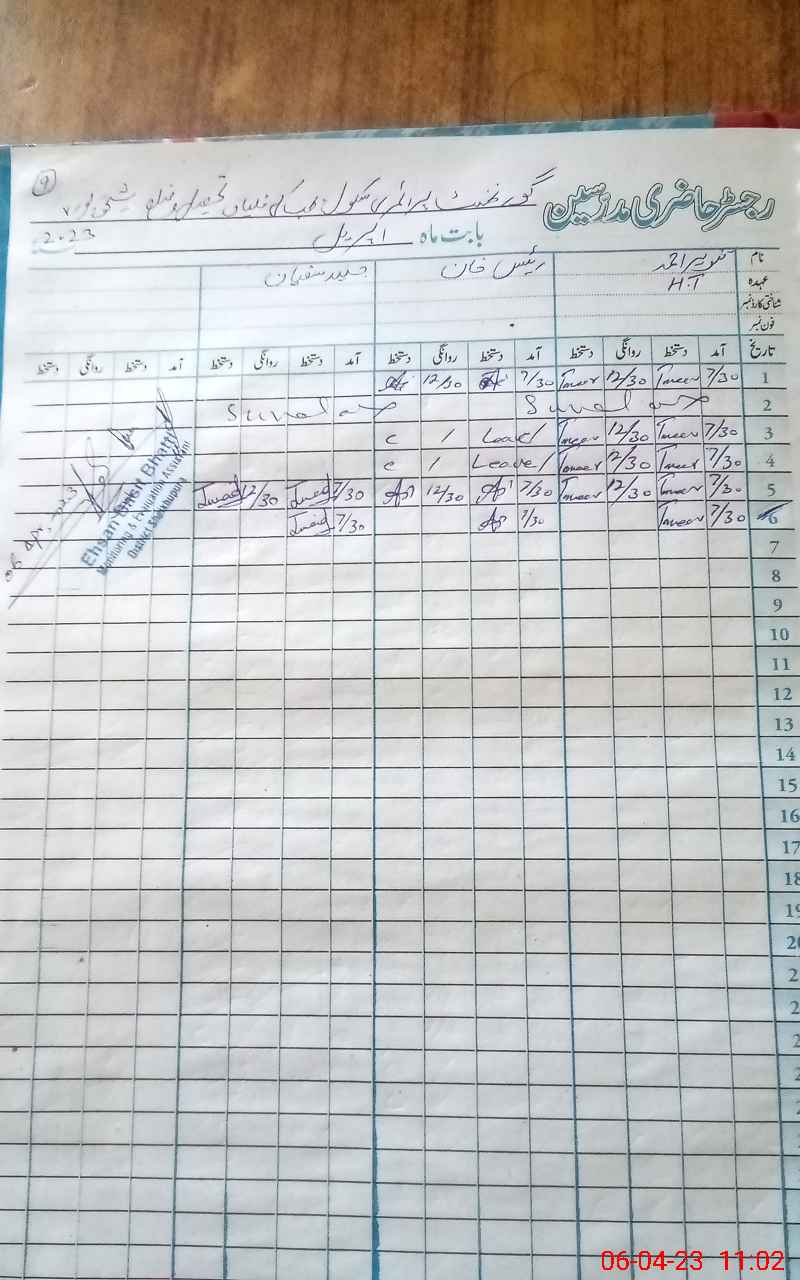 رجسٹر حاضری مدرسین گورنمنٹ پرائمری سکول چک
9
بابت ماہ اپریل 2023
نام تنویر احمد رئیس خان جنید سفیان
عہدہ H.T
شناختی کارڈ نمبر
فون نمبر
تاریخ آمد دستخط روانگی دستخط آمد دستخط روانگی دستخط آمد دستخط روانگی دستخط آمد دستخط روانگی دستخط
1 7/30 Tneer 12/30 Tneer 7/30 12/30
2
3 7/30 Tneer 12/30 Tneer C / Leave /
4 7/30 Tneer 12/30 Tneer C / Leave /
5 7/30 Tneer 12/30 Tneer 7/30 12/30 7/30 Junaid 12/30 Junaid
6 7/30 Tneer 7/30 7/30 Junaid
06 Apr, 2023
Ehsan Bhatti
Monitoring & Evaluation Assistant
7
8
9
10
11
12
13
14
15
16
17
18
06-04-23 11:02